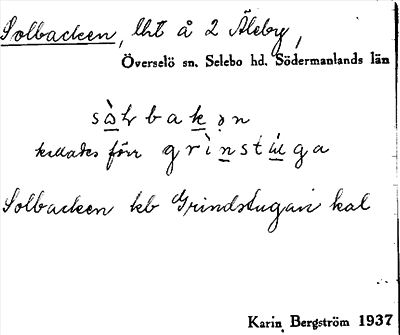 Solbacken, lht å 2 Äleby,
Överselö sn. Selebo hd. Södermanlands län
sòlbakən
kallades förr grìnstùga
Solbacken kb Grindstugan kal
Karin Bergström 1937